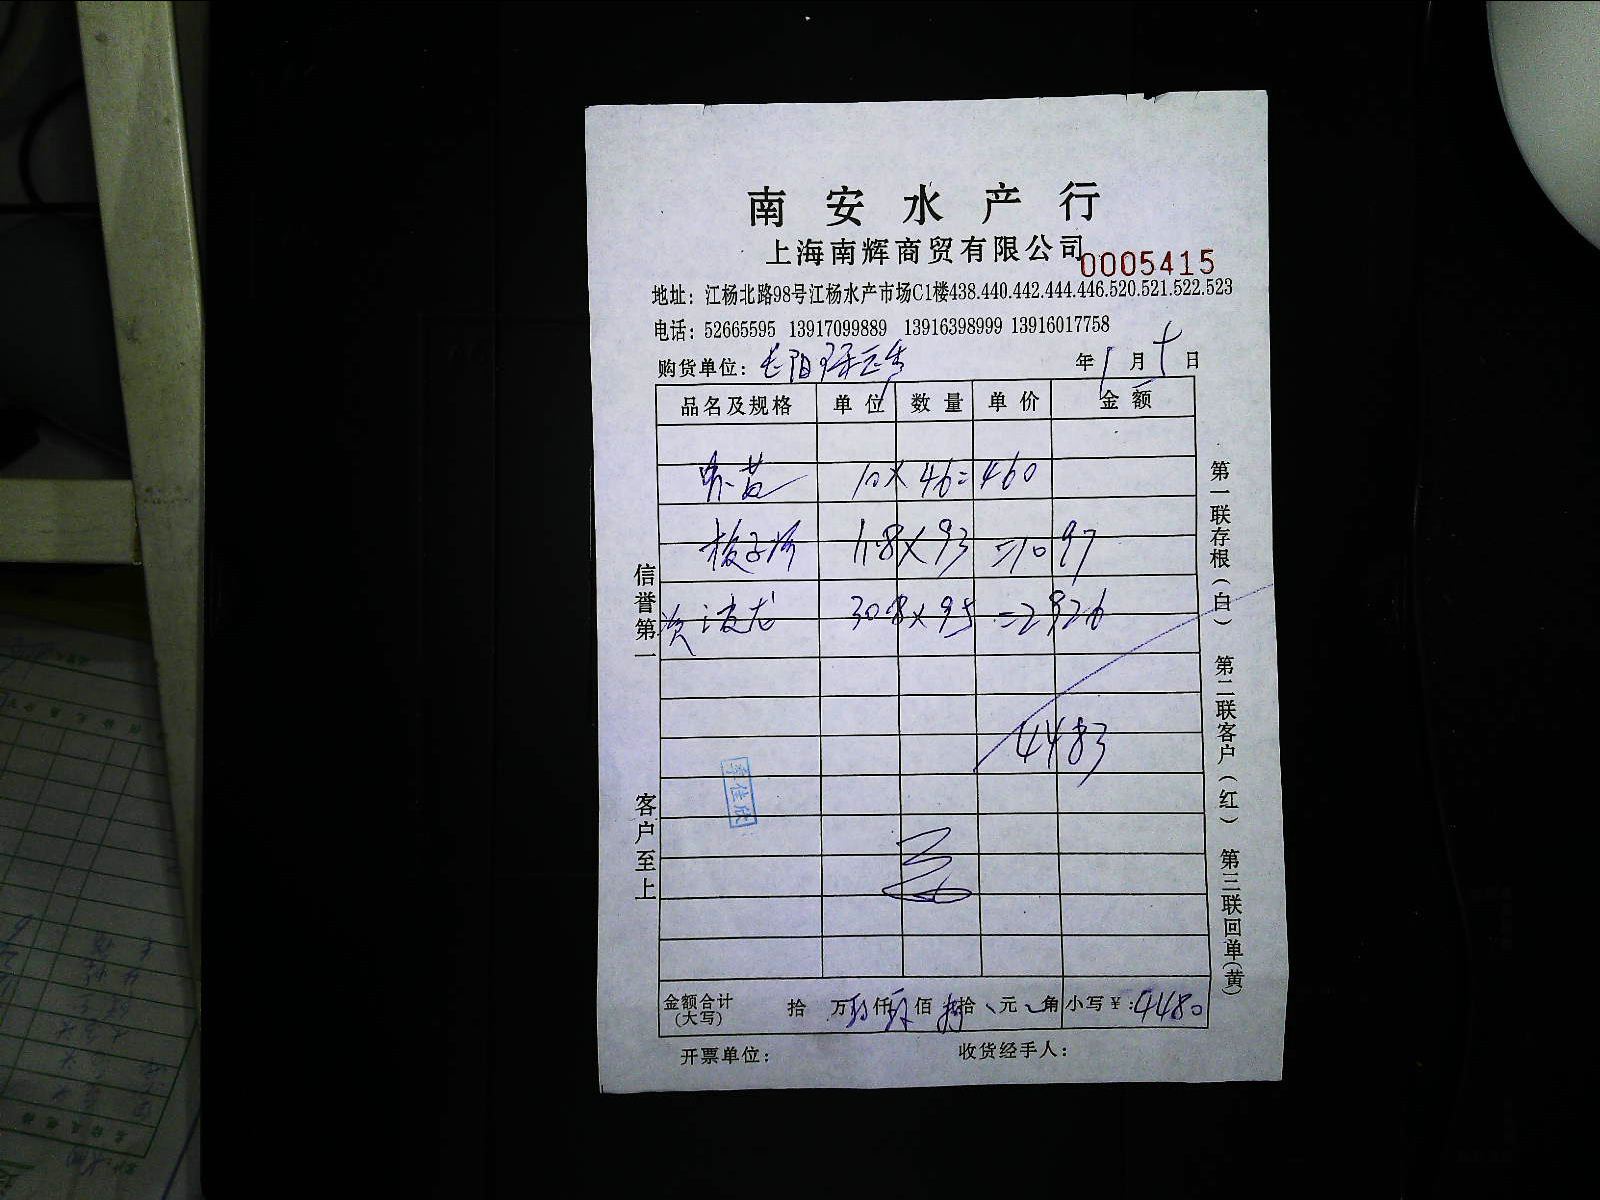 南安水产行
上海南辉商贸有限公司
0005415
地址：江杨北路98号江杨水产市场C1楼438.440.442.444.446.520.521.522.523
电话：52665595 13917099889 13916398999 13916017758
购货单位：长阳 年1月 日
品名及规格 单位 数量 单价 金额
10×46=460
梭子 11.8×93=1097
波龙 30.8×95=2926
4483
李佳欣
金额合计(大写) 拾 万 仟 佰 拾 元 角 小写￥：4480
开票单位： 收货经手人：
信誉第一
客户至上
第一联存根(白) 第二联客户(红) 第三联回单(黄)